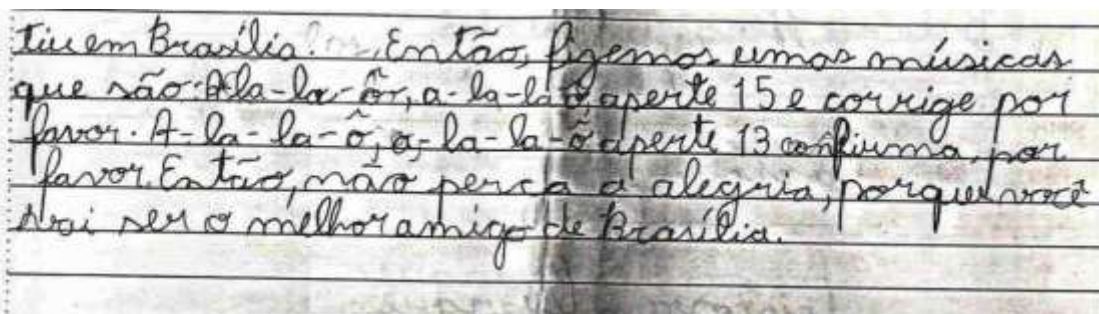 tiu em Brasília. Então, fizemos umas músicas
que são: A-la-la-ô, a-la-la-ô aperte 15 e corrige por
favor. A-la-la-ô, a-la-la-ô aperte 13 confirma, por
favor. Então, não perca a alegria, porque você
vai ser o melhor amigo de Brasília.